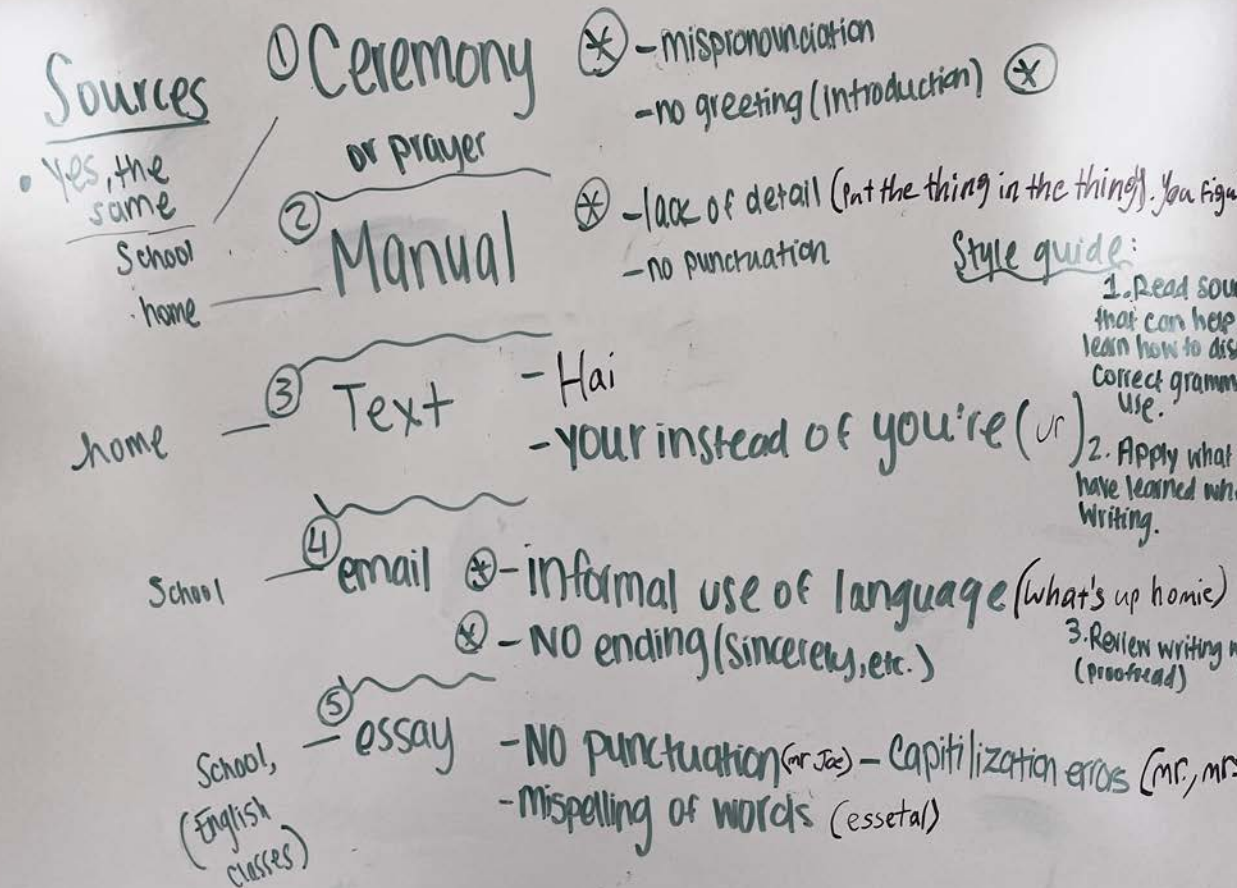 Sources
• Yes, the
same
School
home
① Ceremony
or prayer
* - mispronounciation
- no greeting (introduction) *
② Manual
* - lack of detail (Put the thing in the thing). You
- no punctuation
Style guide:
1. Read
that can help
learn how to
correct
use.
2. Apply what
have learned
writing.
3. Review writing
(proofread)
home
③ Text
- Hai
- your instead of you're (ur)
School
④ email
* - informal use of language (what's up homie)
* - NO ending (sincerely, etc.)
School,
(English
classes)
⑤ essay
- NO punctuation (mr Joe) - Capitilization erros (mr., mrs
- Mispelling of words (essetal)